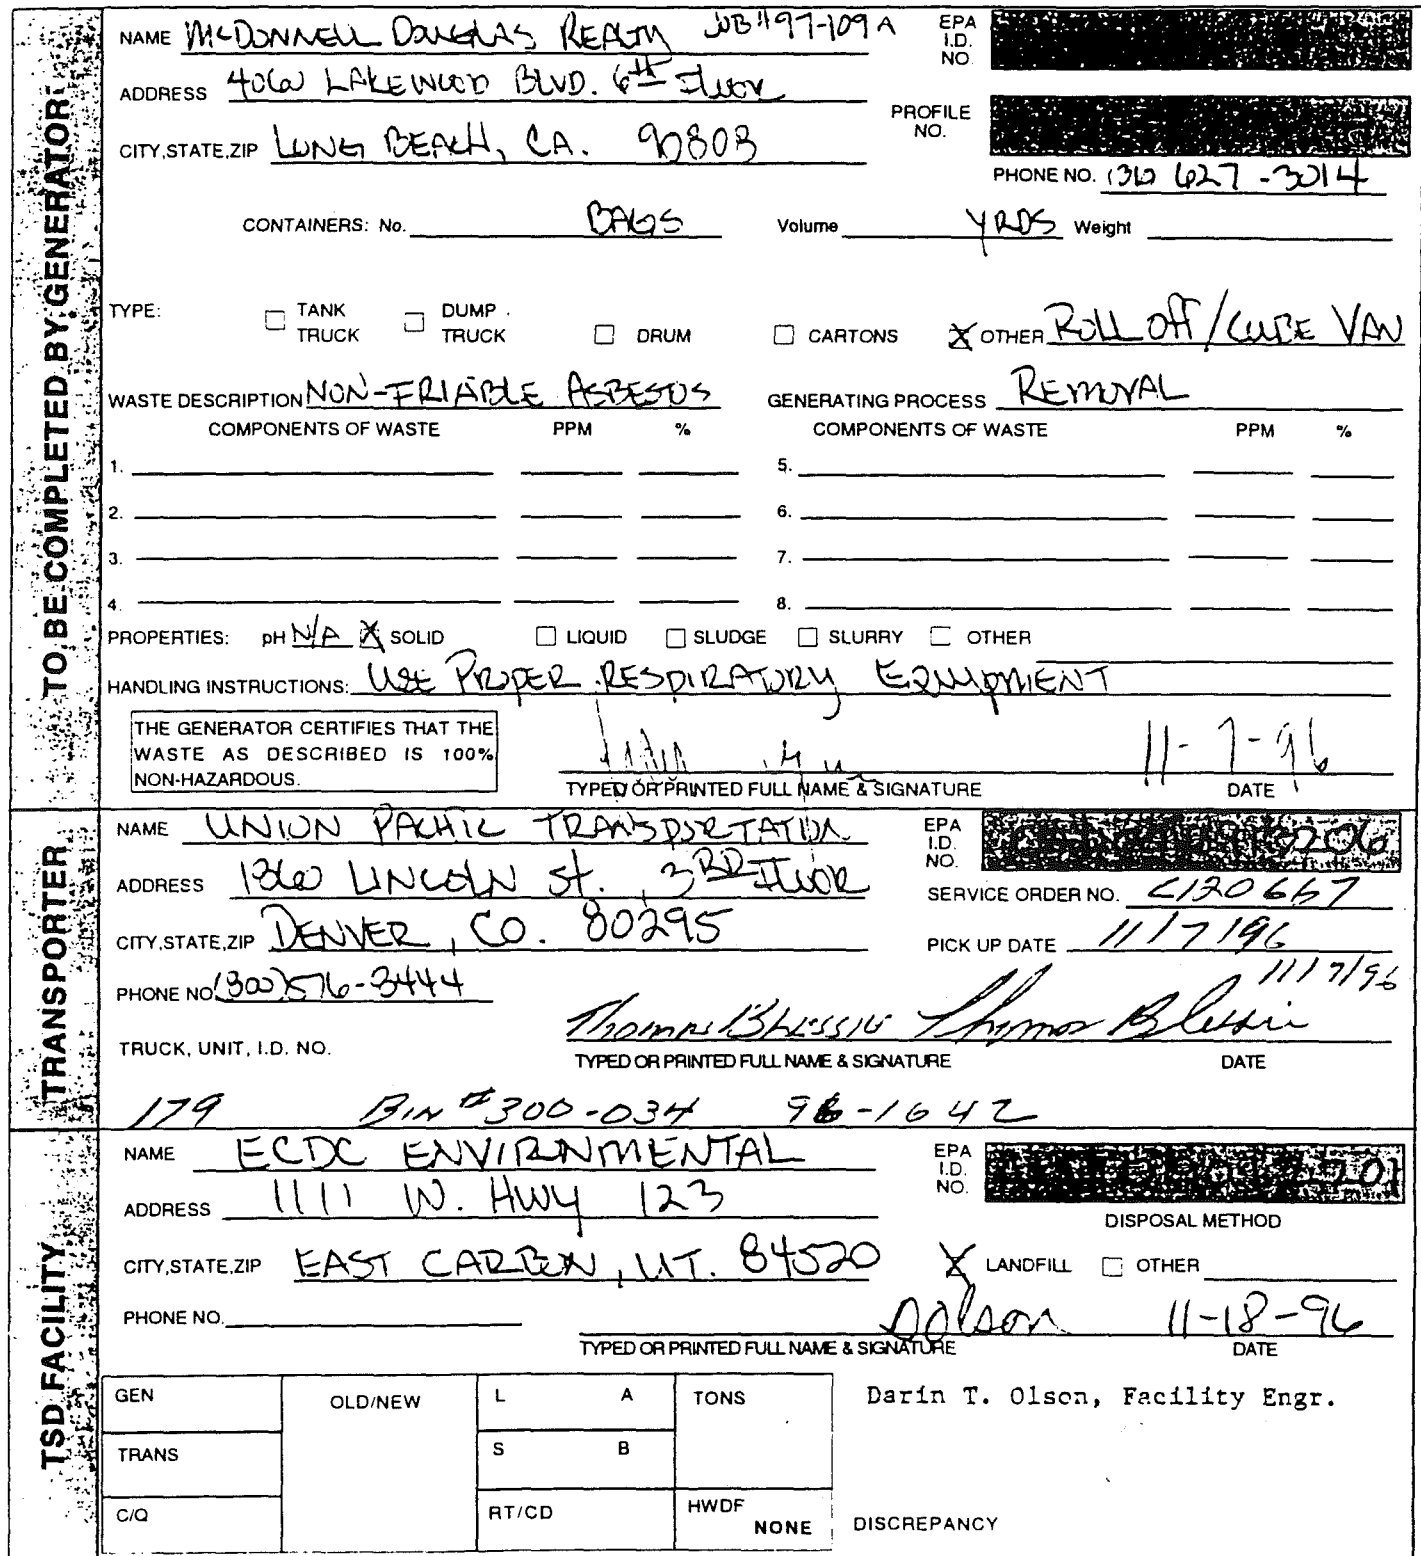 TO BE COMPLETED BY GENERATOR
NAME McDONNELL DOUGLAS REALTY JOB # 97-109 A
EPA I.D. NO.
ADDRESS 4060 LAKEWOOD BLVD. 6th Floor
PROFILE NO.
CITY,STATE,ZIP LONG BEACH, CA. 90808
PHONE NO. (310 627-3014
CONTAINERS: No. BAGS Volume YRDS Weight
TYPE: TANK TRUCK DUMP TRUCK DRUM CARTONS X OTHER ROLL OFF/CUBE VAN
WASTE DESCRIPTION NON-FRIABLE ASBESTOS GENERATING PROCESS REMOVAL
COMPONENTS OF WASTE PPM % COMPONENTS OF WASTE PPM %
1. 5.
2. 6.
3. 7.
4. 8.
PROPERTIES: pH N/A X SOLID LIQUID SLUDGE SLURRY OTHER
HANDLING INSTRUCTIONS: USE PROPER RESPIRATORY EQUIPMENT
THE GENERATOR CERTIFIES THAT THE
WASTE AS DESCRIBED IS 100%
NON-HAZARDOUS.
11-7-96
TYPED OR PRINTED FULL NAME & SIGNATURE DATE
TRANSPORTER
NAME UNION PACIFIC TRANSPORTATION
EPA I.D. NO.
ADDRESS 1860 LINCOLN St. 3RD Floor
SERVICE ORDER NO. C120667
CITY,STATE,ZIP DENVER, CO. 80295
PICK UP DATE 11/7/96
PHONE NO. (800) 576-3444
11/7/96
Thomas Blessie Thomas Blessie
TRUCK, UNIT, I.D. NO.
TYPED OR PRINTED FULL NAME & SIGNATURE DATE
179 BIN # 300-034 96-1642
TSD FACILITY
NAME ECDC ENVIRNMENTAL
EPA I.D. NO.
ADDRESS 1111 W. HWY 123
DISPOSAL METHOD
CITY,STATE,ZIP EAST CARBON, UT. 84520
X LANDFILL OTHER
PHONE NO.
DOlson 11-18-96
TYPED OR PRINTED FULL NAME & SIGNATURE DATE
GEN OLD/NEW L A TONS
Darin T. Olson, Facility Engr.
TRANS S B
C/Q RT/CD HWDF NONE DISCREPANCY